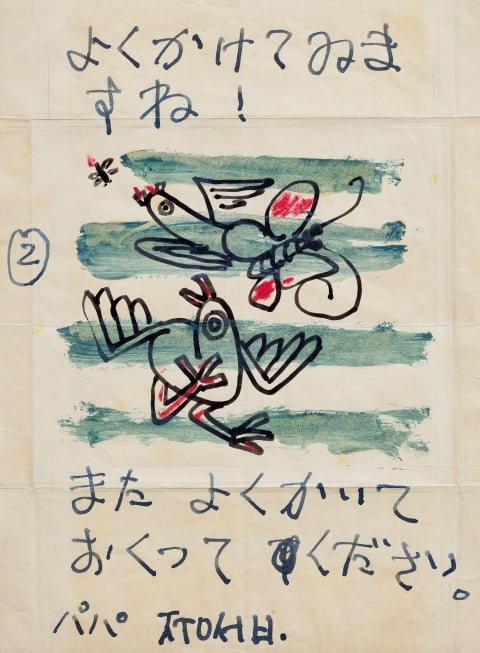 よくかけてゐま
すね!
②
また よくかいて
おくって ください。
パパ